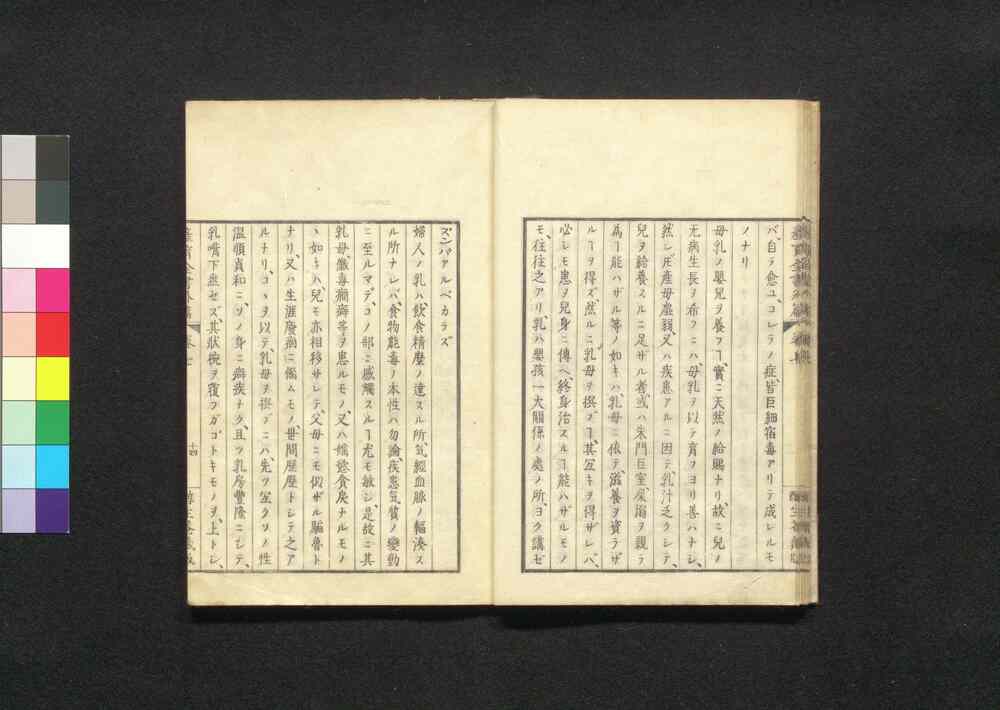 バ、自ラ愈ユ、コレラノ症、皆巨細宿毒アリテ成レルモ
ノナリ
母乳ノ嬰兒ヲ養フヿ實ニ天然ノ給賜ナリ、故ニ兒ノ
无病生長ヲ希フニハ、母乳ヲ以テ育フヨリ善ハナシ、
然レ𪜈産母虛弱、又ハ疾患アルニ因テ、乳汁乏クシテ、
兒ヲ給養スルニ足ザル者、或ハ朱門巨室、屎溺ヲ親ラ
爲ヿ能ハザル等ノ如キハ、乳母ニ依テ滋養ヲ資ラザ
ルヿヲ得ズ、然ルニ乳母ヲ撰ブヿ、其宜キヲ得ザレバ、
必シモ患ヲ兒身ニ傳ヘ、終身治スルヿ能ハザルモノ
モ、往往之アリ、乳ハ嬰孩一大關係ノ處ノ所、ヨク講ゼ
ズンバアルベカラズ
婦人ノ乳ハ、飮食精麼ノ達スル所、氣經血脉ノ輻湊ス
ル所ナレバ、食物能毒ノ本性ハ勿論、疾患氣質ノ變動
ニ至ルマデ、コノ部ニ感觸スルヿ尤モ敏シ、是故ニ其
乳母、黴毒癩癬等ヲ患ルモノ、又ハ婬慾貪戻ナルモノ
ヽ如キハ、兒モ亦相移サレテ、父母ニモ似ザル騙魯ト
ナリ、又ハ生涯廢痼ニ傷ムモノ、世間歷歷トシテ之ア
ルナリ、コヽヲ以テ、乳母ヲ撰ブニハ、先ヅ室クソノ性
温順貞和ニ、ソノ身ニ癬疾ナク、且ツ乳房豐隆ニシテ、
乳嘴下垂セズ、其狀椀ヲ覆フガゴトキモノヲ上トシ、